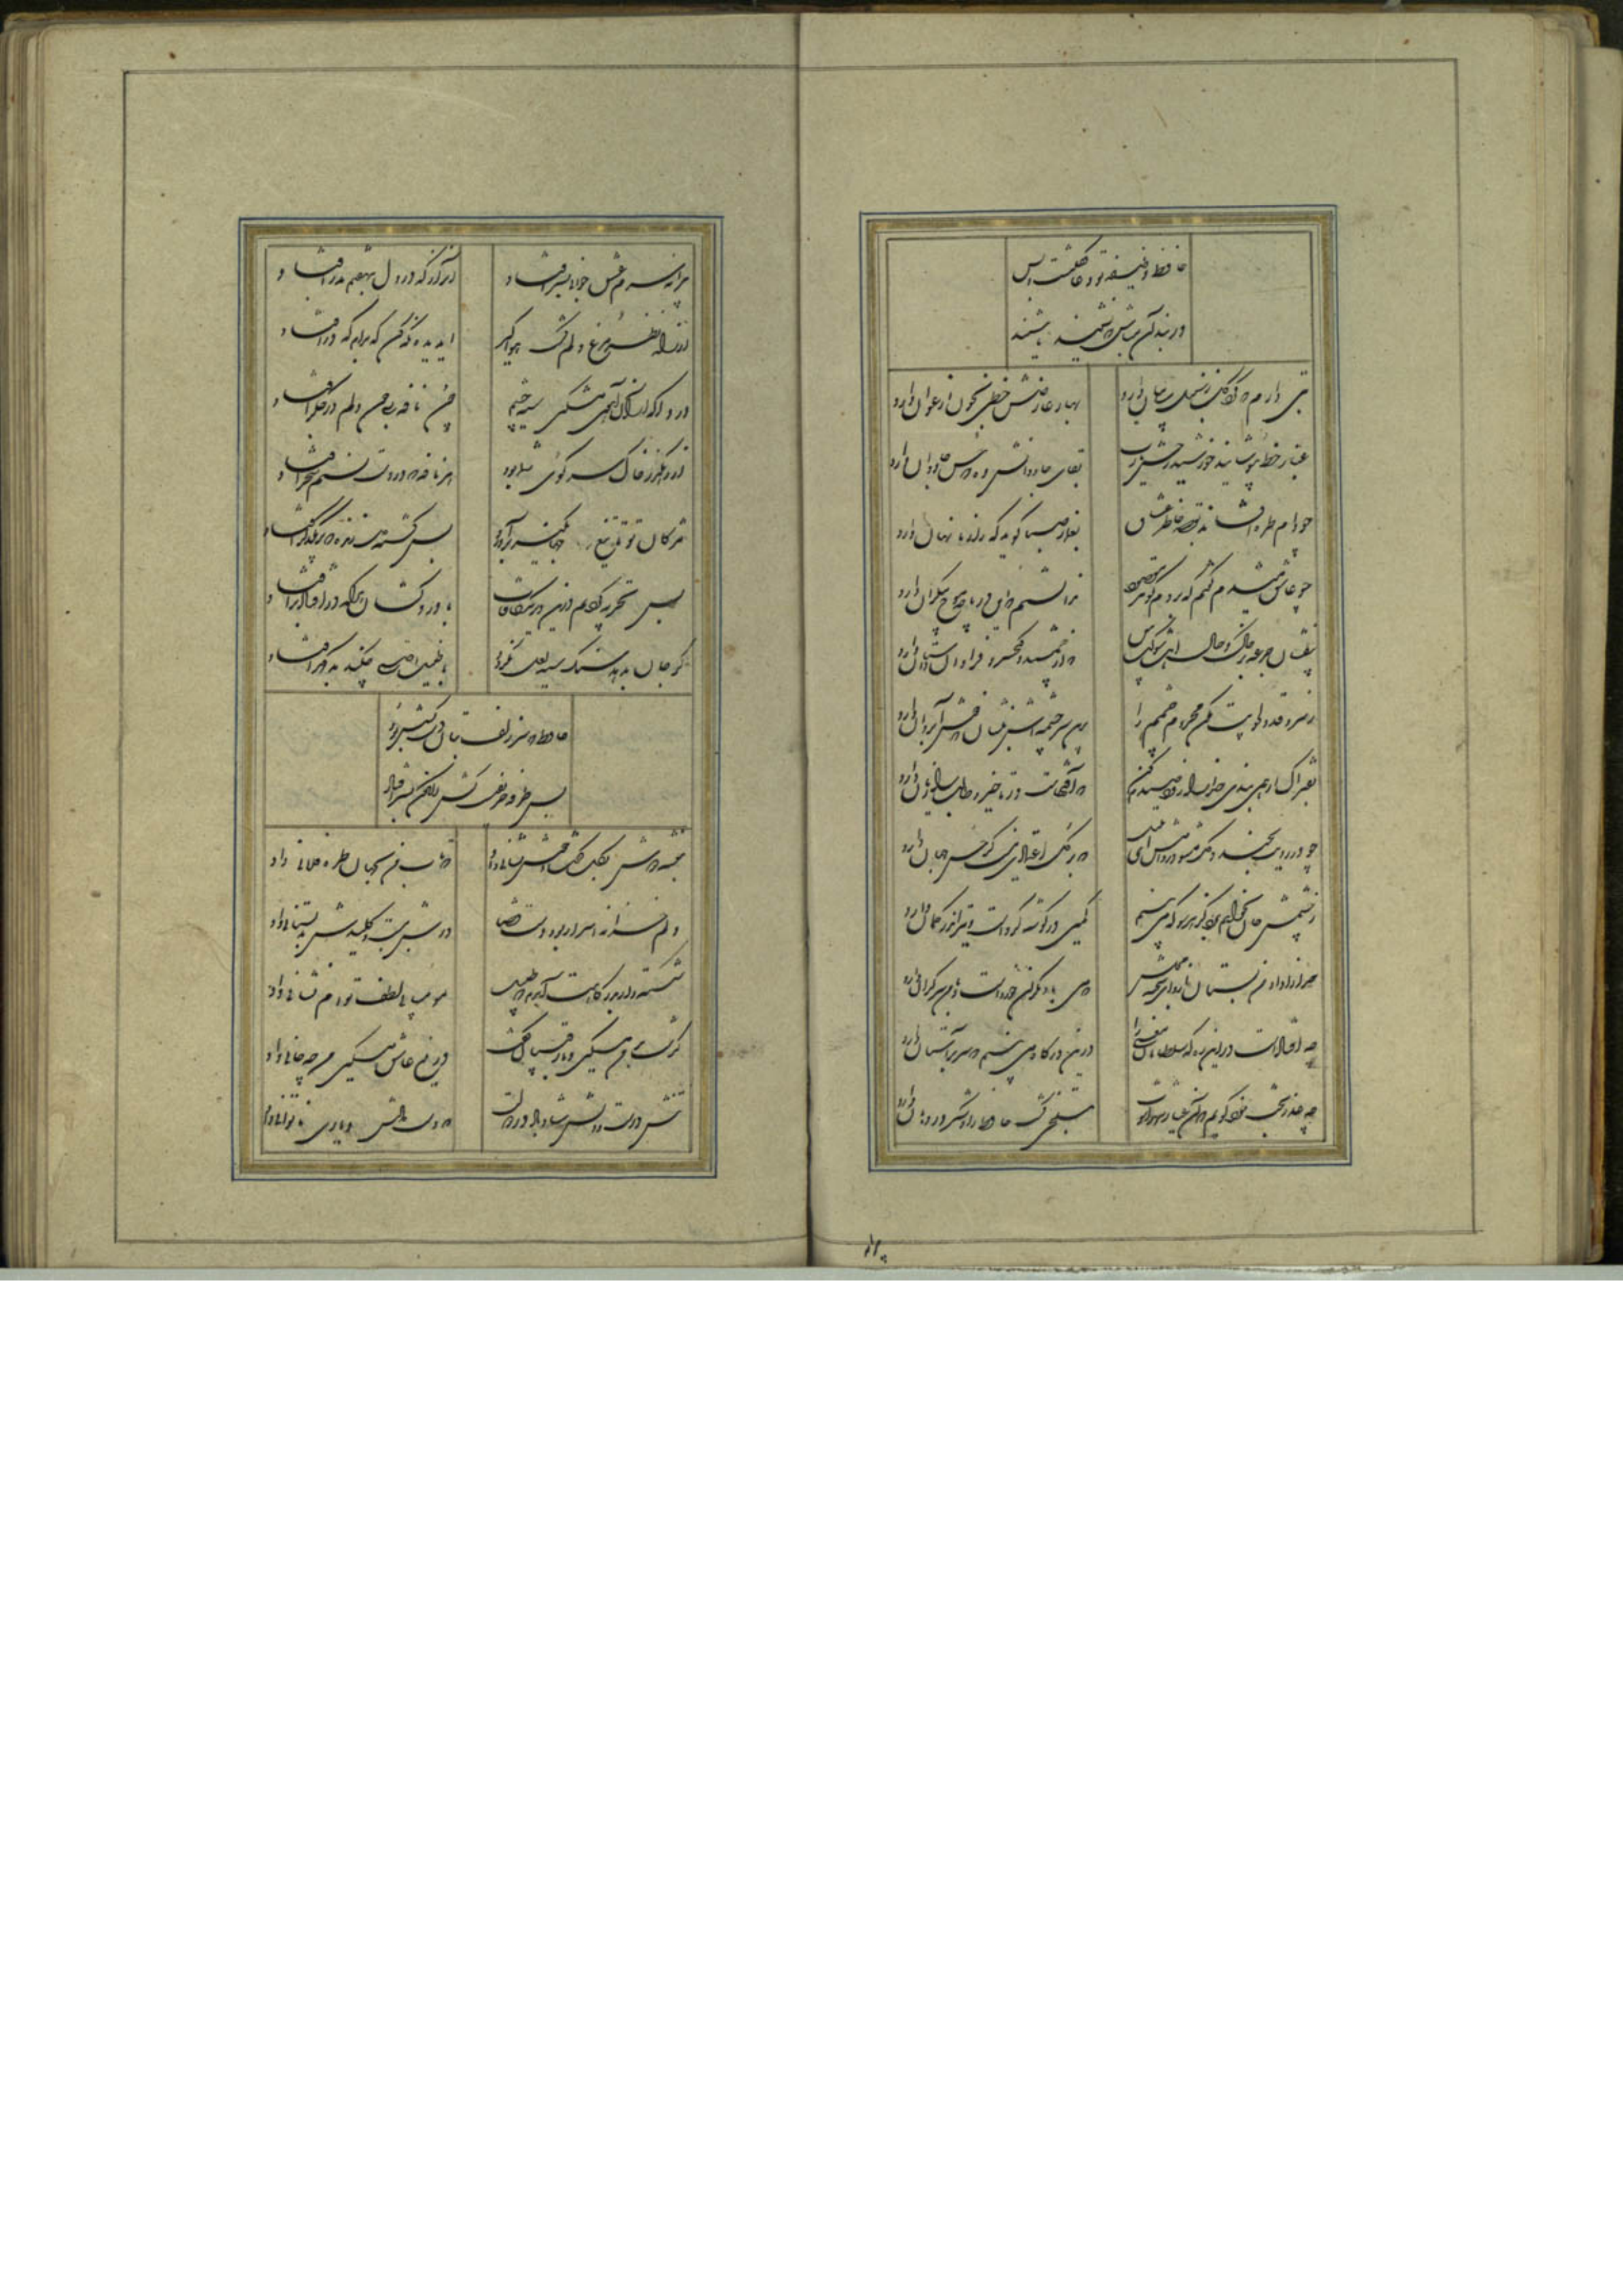 حافظ وظیفه تو دعا گفتنست و بس
در بند آن مباش که نشنید یا شنید
بتی دارم که گرد گل ز سنبل سایبان دارد
بهار عارضش خطی بخون ارغوان دارد
غبار خط بپوشانید خورشید رخش یا رب
بقای جاودانش ده که حسن جاودان دارد
چو دام طره افشاند ز گرد خاطر عشاق
بغماز صبا گوید که راز ما نهان دارد
چو عاشق میشدم گفتم که بردم گوهر مقصود
ندانستم که این دریا چه موج بیکران دارد
بیفشان جرعه بر خاک و حال اهل شوکت پرس
که از جمشید و کیخسرو فراوان داستان دارد
ز سرو قد دلجویت مکن محروم چشمم را
بدین سرچشمه اش بنشان که خوش آبی روان دارد
بفتراک ار همی بندی خدا را زود صیدم کن
که آفتهاست در تاخیر و طالب را زیان دارد
چو در رویت بخندد گل مشو در دامش ای بلبل
که بر گل اعتمادی نیست گر حسن جهان دارد
ز چشمش جان نخواهم برد کز هر سو که می بینم
کمین در گوشه کردست و تیر اندر کمان دارد
خدا را داد من بستان ازو ای شحنه مجلس
که می با دیگران خوردست و با من سر گران دارد
درین درگاه می بینم که سر بر آستان دارد
چه عذر بخت خود گویم که آن عیار شهرآشوب
بتلخی کشت حافظ را و شکر در دهان دارد
پیرانه سرم عشق جوانی بسر افتاد
وان راز که در دل بنهفتم بدر افتاد
از راه نظر مرغ دلم گشت هواگیر
ای دیده نگه کن که بدام که در افتاد
دردا که از آن آهوی مشکین سیه چشم
چون نافه بسی خون دلم در جگر افتاد
از رهگذر خاک سر کوی شما بود
هر نافه که در دست نسیم سحر افتاد
مژگان تو تا تیغ جهانگیر برآورد
بس کشته دل زنده که بر یکدگر افتاد
بس تجربه کردیم درین دیر مکافات
با درد کشان هر که در افتاد برافتاد
گر جان بدهد سنگ سیه لعل نگردد
با طینت اصلی چکند بد گهر افتاد
حافظ که سر زلف بتان دست کشش بود
بس طرفه حریفیست کش اکنون بسر افتاد
بنفشه دوش بگل گفت و خوش نشانی داد
که تاب من بجهان طره فلانی داد
دلم خزانه اسرار بود و دست قضا
درش ببست و کلیدش بدلستانی داد
شکسته وار بدرگاهت آمدم که طبیب
بمومیایی لطف توام نشانی داد
گذشت بر من مسکین و با رقیبان گفت
دریغ عاشق مسکین من چه جانی داد
تنش درست و دلش شاد باد و دولت
که دست دادش و یاری ناتوانی داد